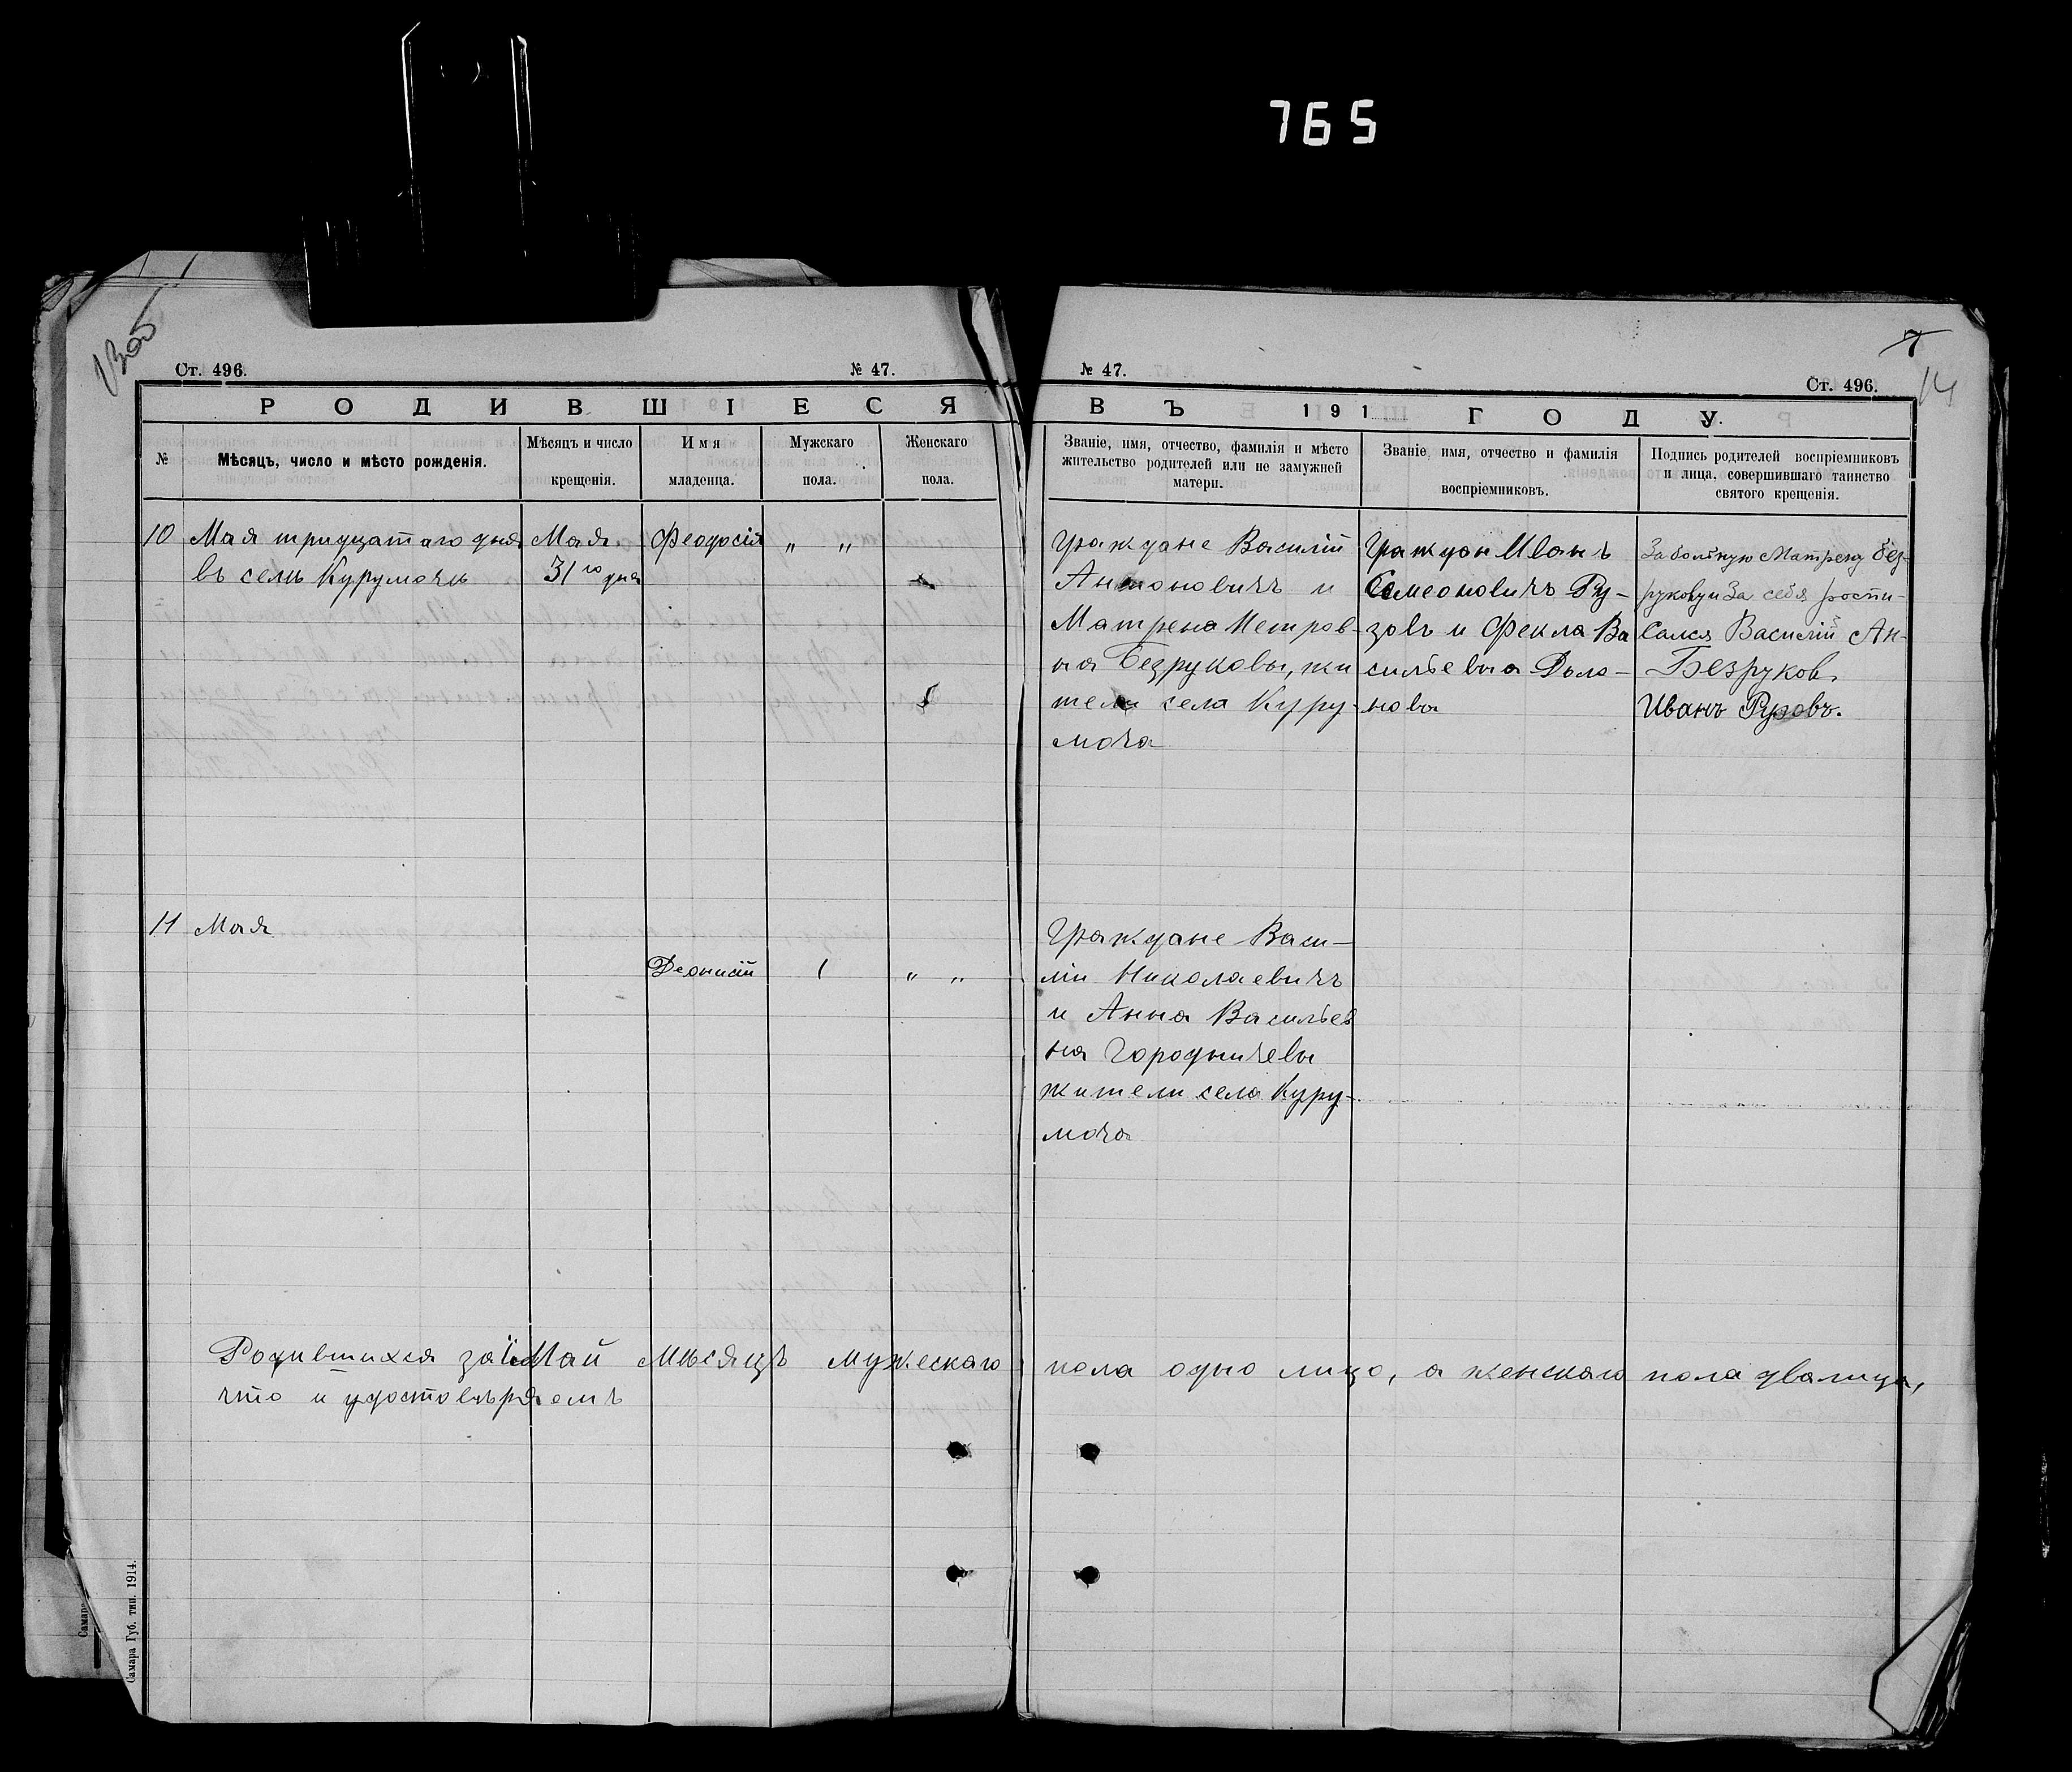 765
7
14
Ст. 496.
№ 47.
№ 47.
Ст. 496.
РОДИВШІЕСЯ
ВЪ 191 ГОДУ.
№
Мѣсяцъ, число и мѣсто рожденія.
Мѣсяцъ и число
крещенія.
Имя
младенца.
Мужскаго
пола.
Женскаго
пола.
Званіе, имя, отчество, фамилія и мѣсто
жительство родителей или не замужней
матери.
Званіе, имя, отчество и фамилія
воспріемниковъ.
Подпись родителей воспріемниковъ
и лица, совершившаго таинство
святого крещенія.
10
Мая тридцатаго дня
въ селѣ Курумочѣ
Мая
31го дня
Феодосія
„ „
1
Граждане Василій
Антоновичъ и
Матрена Петров-
на Безруковы, жи
тели села Куру-
моча
Граждан Иванъ
Симеоновичъ Ру-
зовъ и Фекла Ва
сильевна Доло-
нова
За больную Матрену Без-
рукову и За себя роспи-
сался Василій Ан-
Безруков.
Иванъ Рузовъ.
11
Мая
Деонисій
1
„ „
Граждане Васи-
лій Николаевичъ
и Анна Васильев
на Городничевы
жители села Куру-
моча
Родившихся за Май Мѣсяцъ мужескаго пола одно лицо, а женскаго пола два лица,
что и удостовѣряемъ
Самара Губ. тип. 1914.
Самара